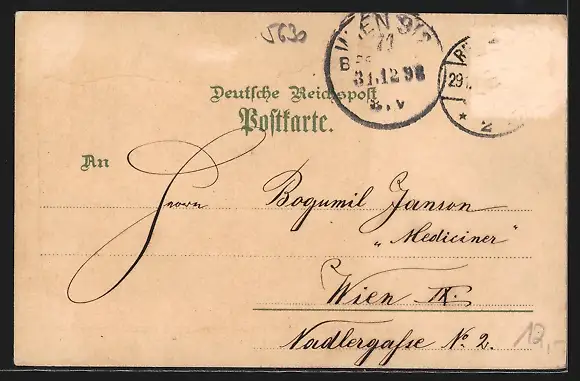 5630
WIEN 9/3
71
B
31.12.98
8.V
29
* 2
Deutsche Reichspost
Postkarte.
An
Herrn Bogumil Janson
„Mediciner"
Wien IX.
Nadlergasse No 2.
12,-